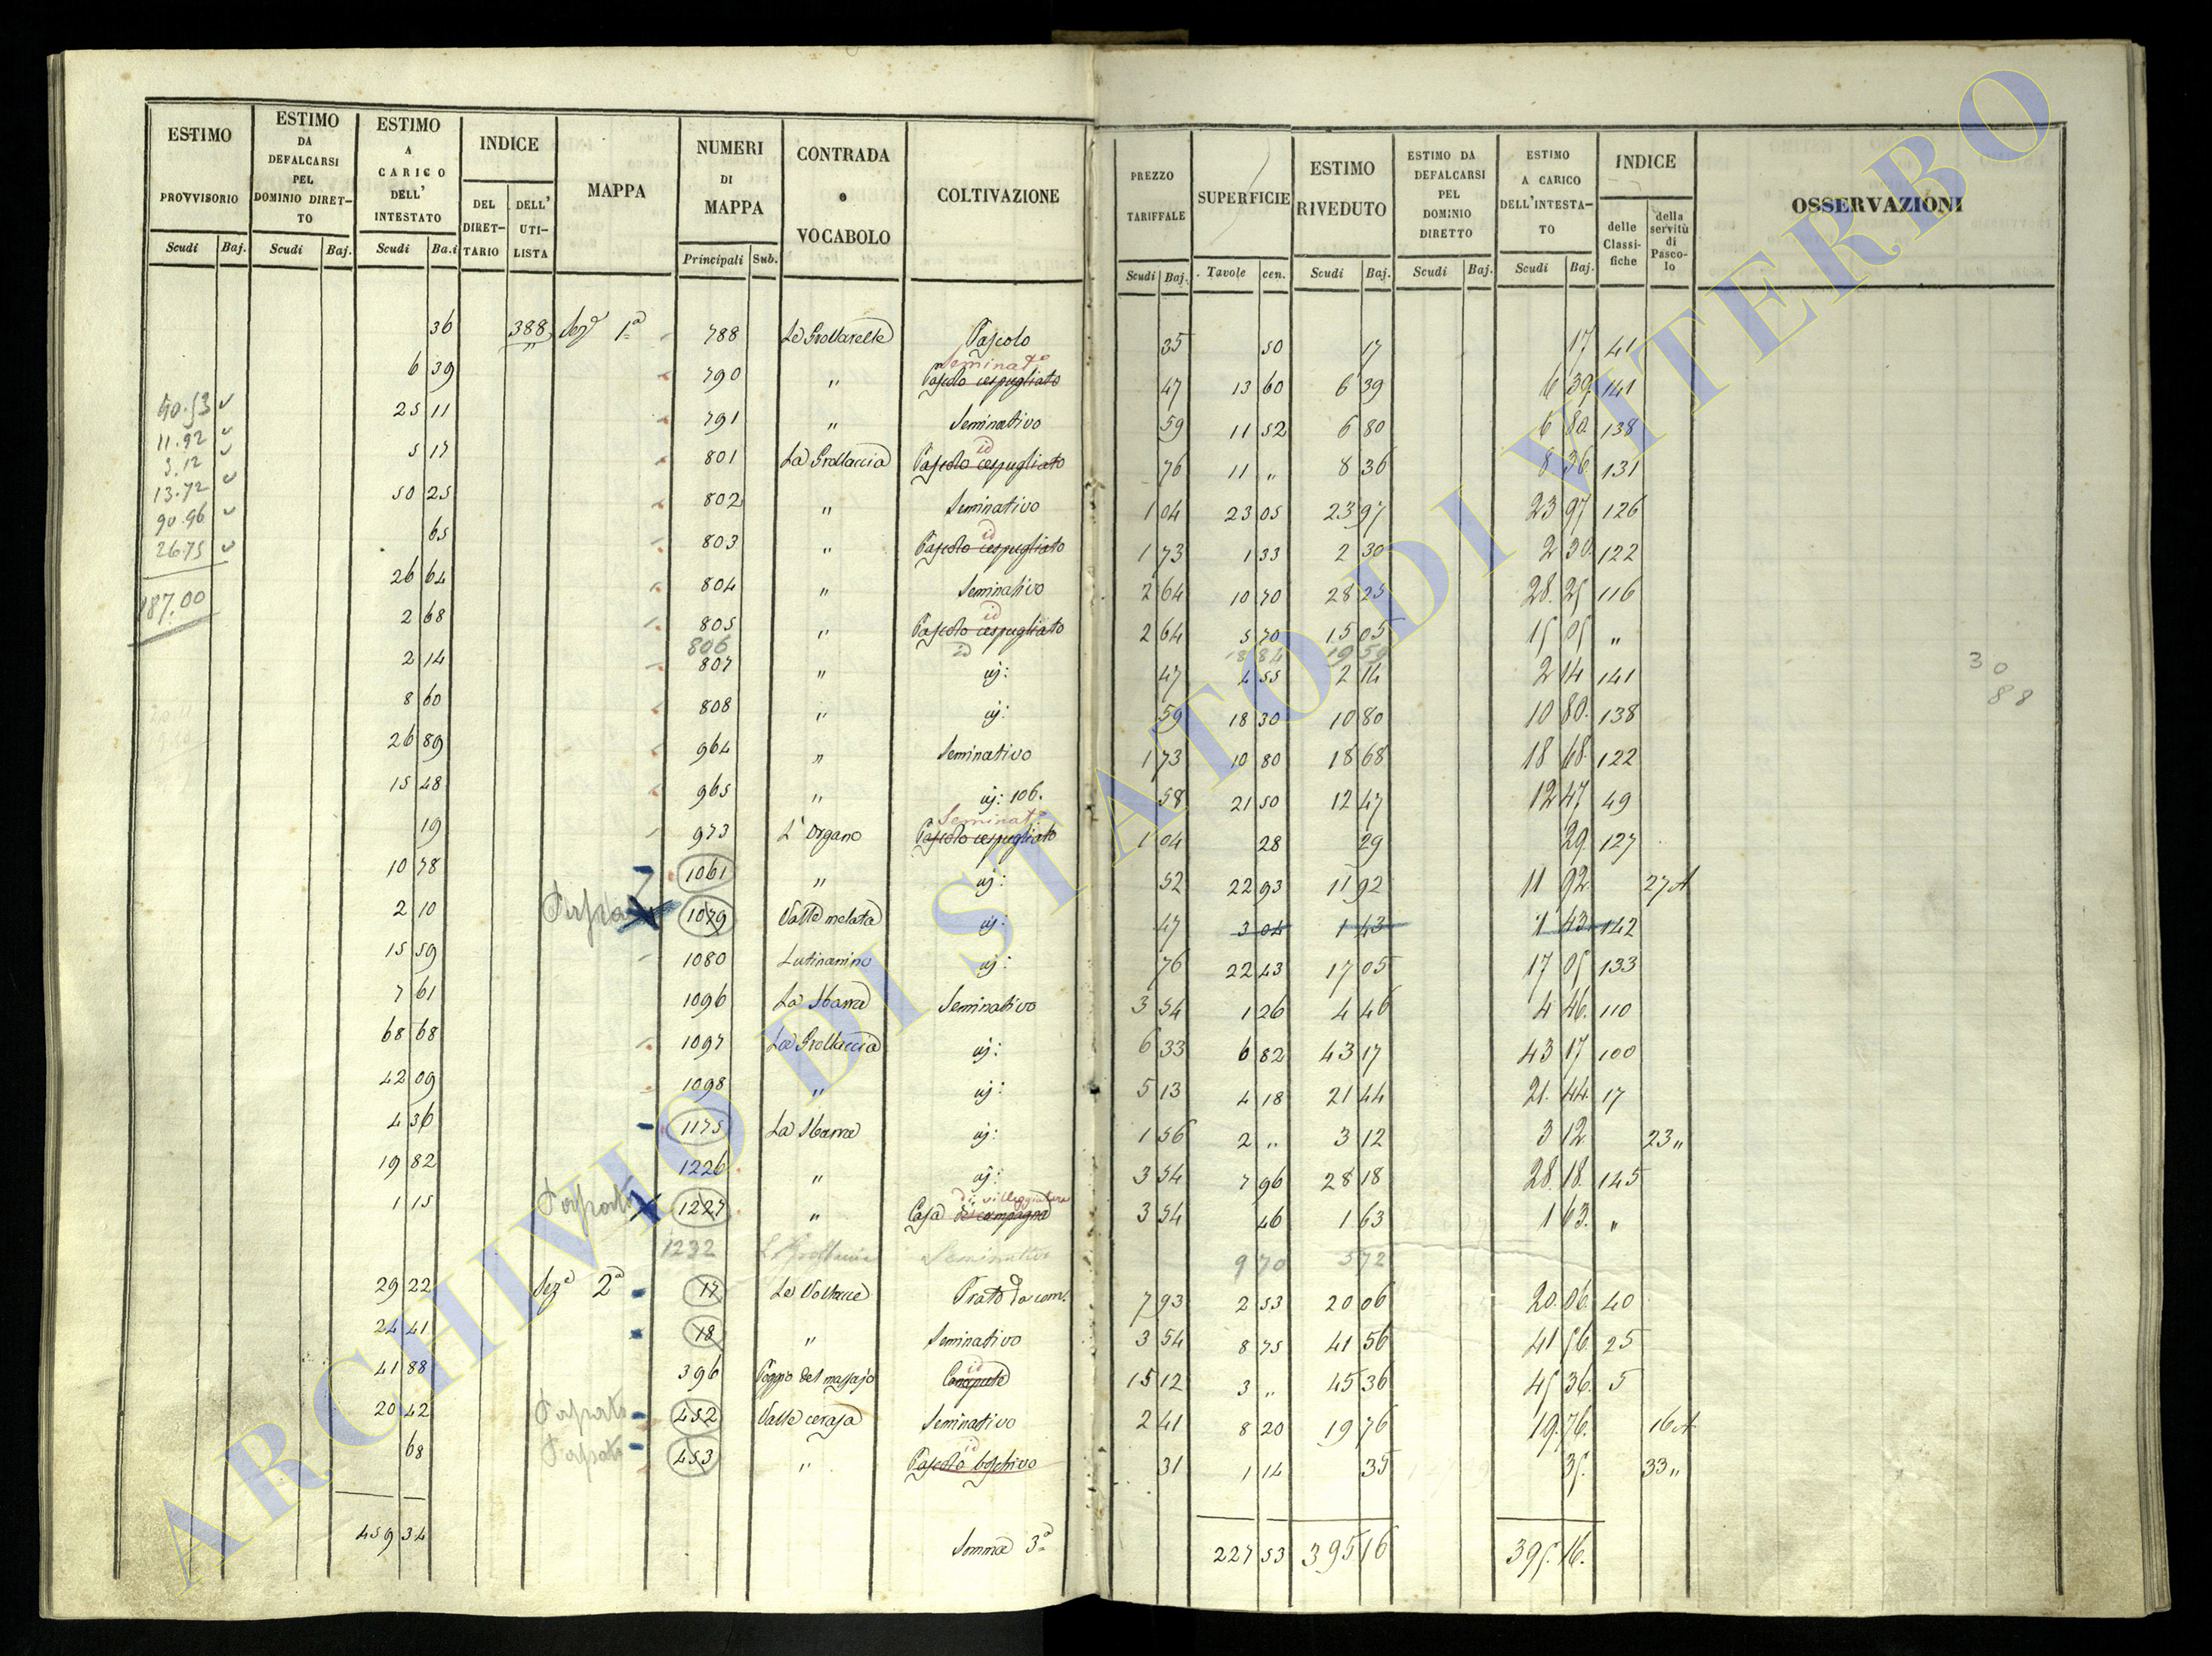 ESTIMO PROVVISORIO Scudi Baj.
ESTIMO DA DEFALCARSI PEL DOMINIO DIRETTO Scudi Baj.
ESTIMO A CARICO DELL' INTESTATO Scudi Ba.i
INDICE DEL DIRETTARIO DELL' UTILISTA
MAPPA
NUMERI DI MAPPA Principali Sub.
CONTRADA o VOCABOLO
COLTIVAZIONE
PREZZO TARIFFALE Scudi Baj.
SUPERFICIE Tavole cen.
ESTIMO RIVEDUTO Scudi Baj.
ESTIMO DA DEFALCARSI PEL DOMINIO DIRETTO Scudi Baj.
ESTIMO A CARICO DELL'INTESTATO Scudi Baj.
INDICE delle Classifiche della servitù di Pascolo
OSSERVAZIONI
36 388 Sezе 1a 788 Le Grottarelle Pascolo 35 50 17 17 41
6 39 790 " Seminato Pascolo cespugliato 47 13 60 6 39 6 39 141
40.53 25 11 791 " Seminativo 59 11 52 6 80 6 80 138
11.92
3.12 5 17 801 La Grottaccia id Pascolo cespugliato 76 11 " 8 36 8 36 131
13.72 50 25 802 " Seminativo 1 04 23 05 23 97 23 97 126
90.96
26.75 65 803 " id Pascolo cespugliato 1 73 1 33 2 30 2 30 122
187.00 26 64 804 " Seminativo 2 64 10 70 28 25 28 25 116
2 68 805 " id Pascolo cespugliato 2 64 5 70 15 05 15 05 "
806 id 18 84 19 59
2 14 807 " id: 47 4 55 2 14 2 14 141
30
88
8 60 808 " id: 59 18 30 10 80 10 80 138
26 89 964 " Seminativo 1 73 10 80 18 68 18 68 122
15 48 965 " id: 106. 58 21 50 12 47 12 47 49
19 973 L'Organo Seminato Pascolo cespugliato 1 04 28 29 29 127
10 78 1061 " id: 52 22 93 11 92 11 92 27 A
2 10 1079 Valle melata id: 47 3 04 1 43 1 43 142
15 59 1080 Lutinanino id: 76 22 43 17 05 17 05 133
7 61 1096 La Sbarra Seminativo 3 54 1 26 4 46 4 46 110
68 68 1097 La Grottaccia id: 6 33 6 82 43 17 43 17 100
42 09 1098 " id: 5 13 4 18 21 44 21 44 17
4 36 1175 La Sbarra id: 1 56 2 " 3 12 3 12 23 "
19 82 1226 " id: 3 54 7 96 28 18 28 18 145
1 15 1227 " Casa di villeggiatura di campagna 3 54 46 1 63 1 63 "
1232 Seminativo 9 70 572
29 22 Seze 2a 17 Le Voltacce Prato da 7 93 2 53 20 06 20 06 40
24 41 18 " Seminativo 3 54 8 75 41 56 41 56 25
41 88 396 Poggio del massajo id Canapule 15 12 3 " 45 36 45 36 5
20 42 452 Valle cerasa Seminativo 2 41 8 20 19 76 19 76 16 A
68 453 " id Pascolo boschivo 31 1 14 35 35 33 "
459 34 Somma 3a 227 53 395 16 395 16
ARCHIVIO DI STATO DI VITERBO